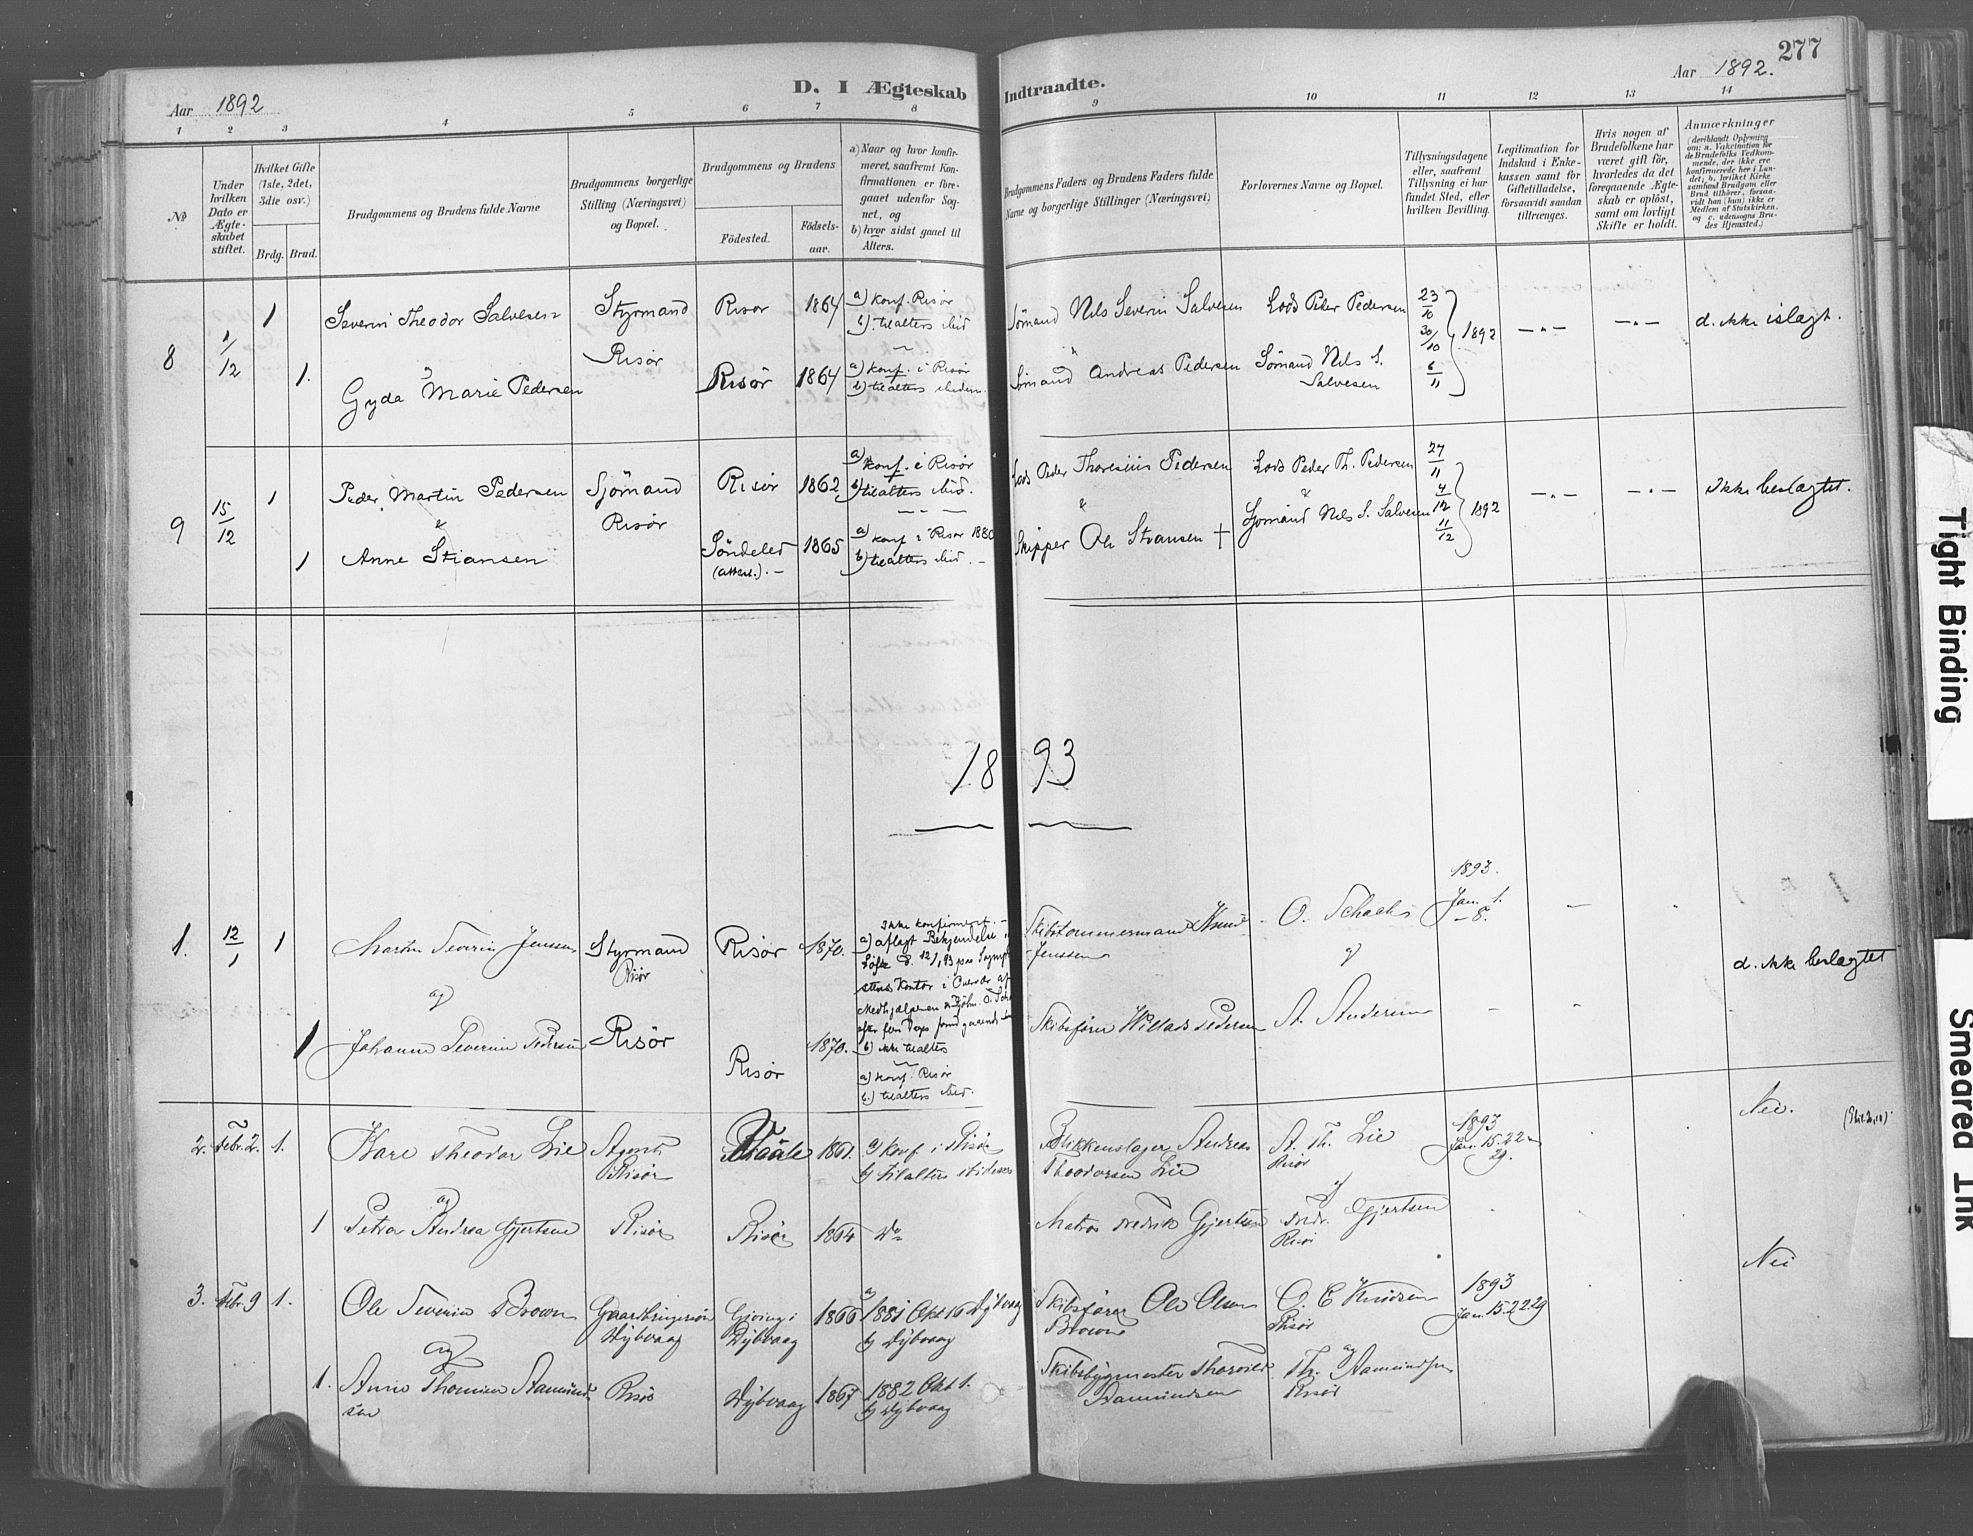 277
D. I Ægteskab Indtraadte.
Aar 1892
Aar 1892.
1 2 3 4 5 6 7 8 9 10 11 12 13 14
No
Under hvilken Dato er Ægteskabet stiftet.
Hvilket Gifte (1ste, 2det, 3die osv.)
Brdg. Brud.
Brudgommens og Brudens fulde Navne
Brudgommens borgerlige Stilling (Næringsvei) og Bopæl.
Brudgommens og Brudens
Fødested.
Fødsels-aar.
a) Naar og hvor konfir-
meret, saafremt Kon-
firmationen er fore-
gaaet udenfor Sog-
net, og
b) hvor sidst gaaet til
Alters.
Brudgommens Faders og Brudens Faders fulde
Navne og borgerlige Stillinger (Næringsvei)
Forlovernes Navne og Bopæl.
Tillysningsdagene
eller, saafremt
Tillysning ei har
fundet Sted, efter
hvilken Bevilling.
Legitimation for
Indskud i Enke-
kassen samt for
Giftetilladelse,
forsaavidt saadan
tiltrænges.
Hvis nogen af
Brudefolkene har
været gift før,
hvorledes da det
foregaaende Ægte-
skab er opløst,
samt om lovligt
Skifte er holdt.
Anmærkninger
(deriblandt Oplysning
om: a. Vaccination for
de Brudefolks Vedkom-
mende, der ikke ere
konfirmerede her i Lan-
det; b. hvilket Kirke
samfund Brudgom eller
Brud tilhører, forsaa-
vidt han (hun) ikke er
Medlem af Statskirken,
og c. udensogns Bru-
des Hjemsted.)
8
1/12
1
Severin Theodor Salvesen
Styrmand
Risør
Risør
1864
a) konf. Risør
b) tilalters
Sømand Nils Severin Salvesen
Lods Peder Pedersen
23/10
30/10
6/11
1892
d. ikke islægt.
1.
&
Gyda Marie Pedersen
Risør
1864
a) konf. i Risør
b) tilalters
&
Sømand Andreas Pedersen
Sømand Nils S.
Salvesen
9
15/12
1
Peder Martin Pedersen
Sjömand
Risør
Risør
1862
a) konf. i Risør
b) tilalters
Lods Peder Thoresius Pedersen
Lods Peder Th. Pedersen
27/11
4/12
11/12
1892
ikke beslægtet.
&
1
Anne Stiansen
Söndeled
(attest.).-
1865
a) konf. i Risør 1880
b) tilalters
&
Skipper Ole Stiansen †
&
Sjømand Nils S. Salvesen
1893
1.
12/1
1
Martin Severin Jenssen
Styrmand
Risør
Risør
1870.
Ikke konfirmeret.
a) aflagt Bekjendelse
b) ikke tilalters
Skibstømmermand Knud
Jenssen
O. Schach
1893.
Jan. 1.
- 8.
d. ikke beslægtet
og
1
Johanne Severine Pedersen
Risør
Risør
1870.
a) konf. Risør
b.) tilalters
Skibsfører Willads Pedersen
og
A. Andersen
2.
Febr. 2.
1.
Kare Theodor Lie
Agent
Risør
1861.
a) konf i Risør
b) tilalters
Blikkenslager Andreas
Theodorsen Lie
A. Th. Lie
Risør
1893
Jan. 15. 22
29.
Nei.
og
1
Petra Andrea Gjertsen
Risør
Risør
1864
Do
Matros Fredrik Gjertsen
og
Fredr. Gjertsen
Risør
3.
Febr. 9
1.
Ole Severin Brown
Gaardbrugersøn
Dybvaag
Gjeving i
Dybvaag
1866
a) 1881 Okt 16 Dybvaag
b) Dybvaag
Skibsfører Ole Olsen
Brown
O. E Knudsen
Risør
1893
Jan. 15. 22. 29
Nei
og
1.
Anne Thomine Aamund-
sen
Risør
Dybvaag
1867
1882 Okt 1.
b) Dybvaag
Skibsbygmester Thorvald
Aamundsen
og
Th. Aamundsen
Risør
Tight Binding
Smeared Ink